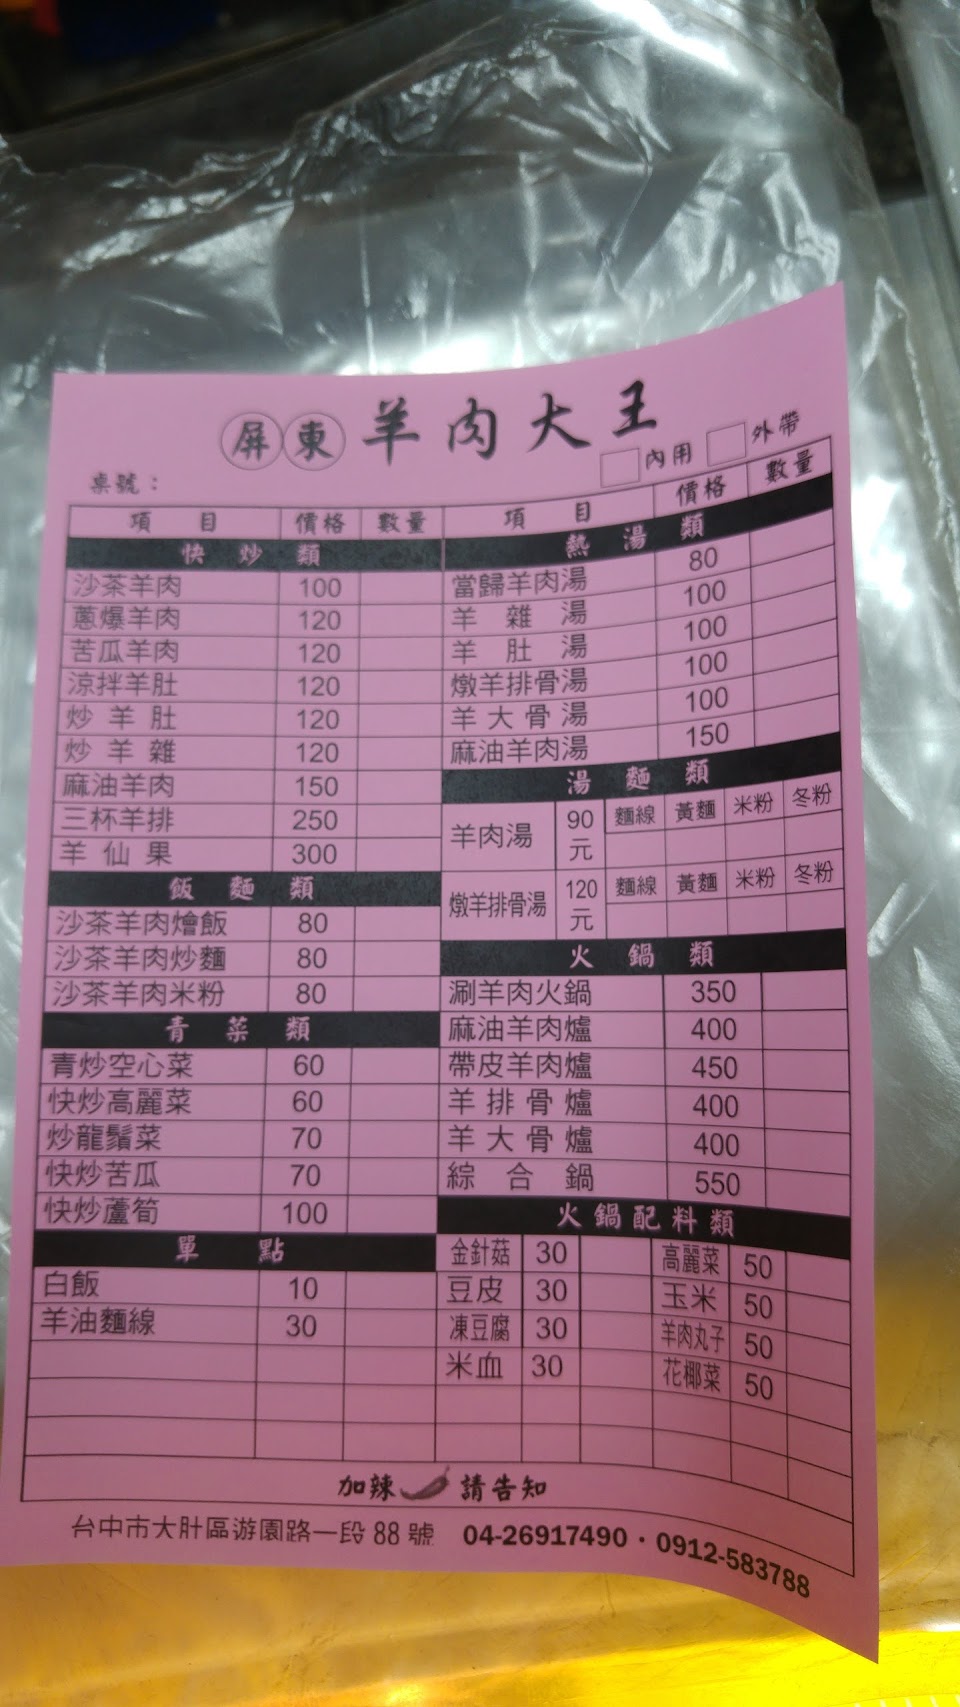 屏東羊肉大王
桌號： 內用 外帶
項目 價格 數量
快炒類
沙茶羊肉 100
蔥爆羊肉 120
苦瓜羊肉 120
涼拌羊肚 120
炒羊肚 120
炒羊雜 120
麻油羊肉 150
三杯羊排 250
羊仙果 300
飯麵類
沙茶羊肉燴飯 80
沙茶羊肉炒麵 80
沙茶羊肉米粉 80
青菜類
青炒空心菜 60
快炒高麗菜 60
炒龍鬚菜 70
快炒苦瓜 70
快炒蘆筍 100
單點
白飯 10
羊油麵線 30
項目 價格 數量
熱湯類
當歸羊肉湯 80
羊雜湯 100
羊肚湯 100
燉羊排骨湯 100
羊大骨湯 100
麻油羊肉湯 150
湯麵類
羊肉湯 90元 麵線 黃麵 米粉 冬粉
燉羊排骨湯 120元 麵線 黃麵 米粉 冬粉
火鍋類
涮羊肉火鍋 350
麻油羊肉爐 400
帶皮羊肉爐 450
羊排骨爐 400
羊大骨爐 400
綜合鍋 550
火鍋配料類
金針菇 30 高麗菜 50
豆皮 30 玉米 50
凍豆腐 30 羊肉丸子 50
米血 30 花椰菜 50
加辣 請告知
台中市大肚區遊園路一段 88 號 04-26917490・0912-583788